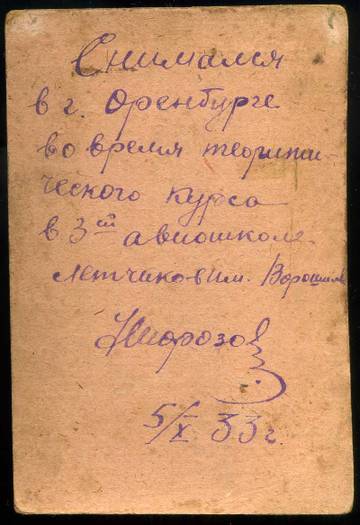 Снимался
в г. Оренбурге
во время теорити-
ческого курса
в 3ей авиошколе
летчиков им. Ворошил
Морозов
5/X 33 г.